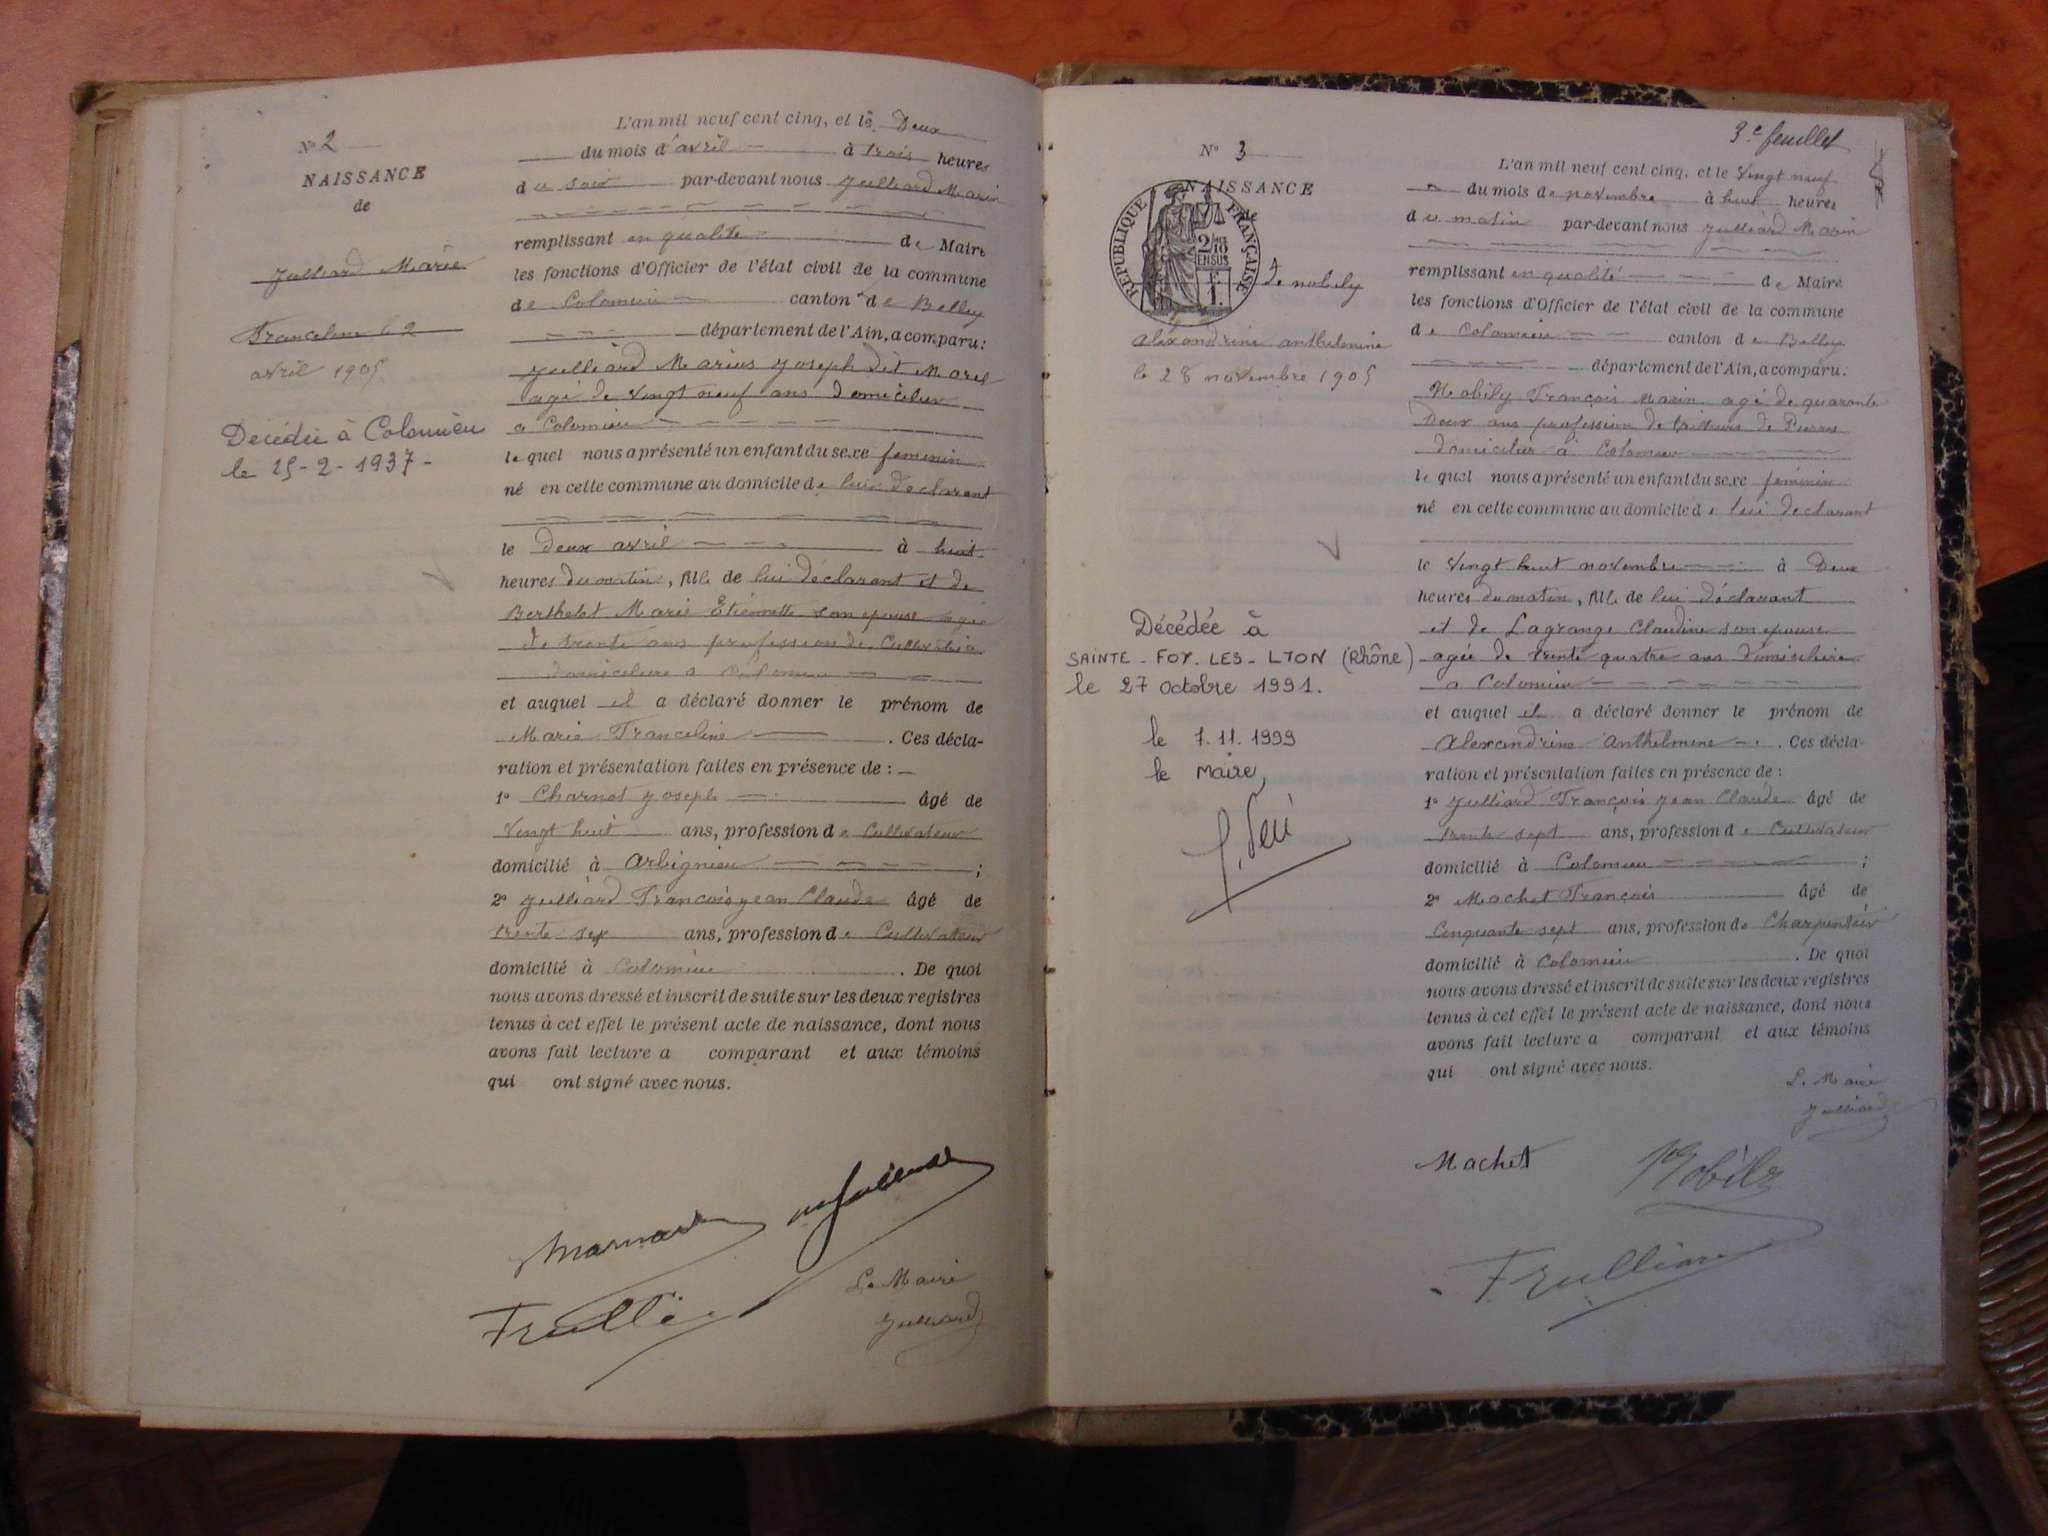 N° 2
NAISSANCE
de
Julliard Marie
Franceline le 2
avril 1905
Décédée à Colomieu
le 25-2-1937-
L'an mil neuf cent cinq, et le Deux
du mois d'avril à trois heures
du soir par-devant nous Julliard Marin
remplissant en qualité de Maire
les fonctions d'Officier de l'état civil de la commune
de Colomieu canton de Belley
département de l'Ain, a comparu:
Julliard Marius Joseph dit Marel
agé de vingt neuf ans domicilier
a Colomieu
lequel nous a présenté un enfant du sexe feminin
né en cette commune au domicile de lui declarant
le deux avril à huit
heures du matin, fille de lui déclarant et de
Berthelet Marie Etiennette son epouse agée
de trente ans profession de Cultivatrice
domiciliere a Colomieu
et auquel il a déclaré donner le prénom de
Marie Franceline . Ces décla-
ration et présentation faites en présence de :
1° Charnot Joseph âgé de
Vingt huit ans, profession de Cultivateur
domicilié à Arbignieu ;
2° Julliard François Jean Claude âgé de
trente sep ans, profession de Cultivateur
domicilié à Colomieu . De quoi
nous avons dressé et inscrit de suite sur les deux registres
tenus à cet effet le présent acte de naissance, dont nous
avons fait lecture a comparant et aux témoins
qui ont signé avec nous.
Le Maire
Julliard
3e feuillet
N° 3
NAISSANCE
de
RÉPUBLIQUE FRANÇAISE
2/10 EN SUS
F. 1.
nobily
Aléxandrine anthelmine
le 28 novembre 1905
Décédée à
SAINTE-FOY-LES-LYON (Rhône)
le 27 octobre 1991.
le 7.11.1999
le Maire,
L'an mil neuf cent cinq, et le vingt neuf
du mois de novembre à huit heures
du matin par-devant nous Julliard Marin
remplissant en qualité de Maire
les fonctions d'Officier de l'état civil de la commune
de Colomieu canton de Belley
département de l'Ain, a comparu.
Nobily François Marin agé de quarante
Deux ans profession de tailleurs de Pierres
domicilier à Colomieu
lequel nous a présenté un enfant du sexe féminin
né en cette commune au domicile de lui declarant
le Vingt huit novembre à Deux
heures du matin, fille de lui déclarant
et de Lagrange Claudine son epouse
agée de trente quatre ans domiciliere
a Colomieu
et auquel il a déclaré donner le prénom de
Alexandrine Anthelmine . Ces décla-
ration et présentation faites en présence de :
1° Julliard François Jean Claude âgé de
trente sept ans, profession de Cultivateur
domicilié à Colomieu ;
2° Machet François âgé de
Cinquante sept ans, profession de Charpentier
domicilié à Colomieu . De quoi
nous avons dressé et inscrit de suite sur les deux registres
tenus à cet effet le présent acte de naissance, dont nous
avons fait lecture a comparant et aux témoins
qui ont signé avec nous.
Le Maire
Julliard
Machet Nobily
FJulliard